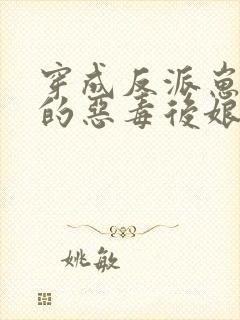 穿成反派崽
的惡毒後娘
姚敏